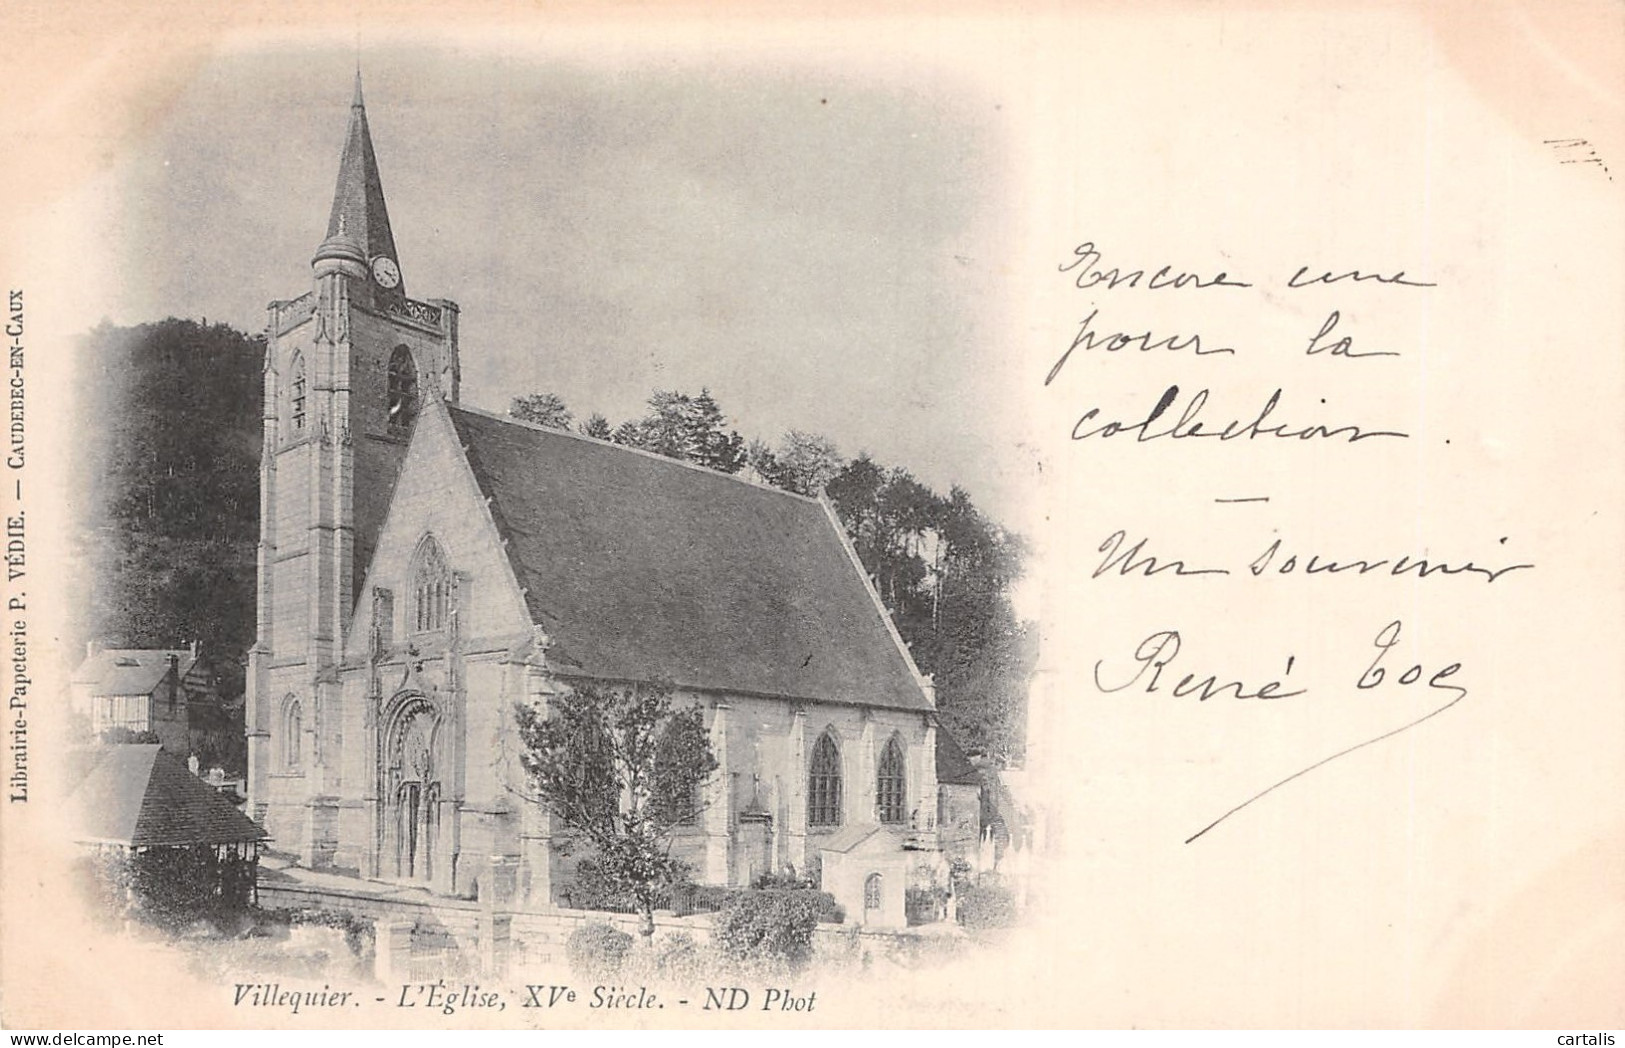 Librairie-Papeterie P. VÉDIE. — CAUDEBEC-EN-CAUX
Encore une
pour la
collection.
—
Un souvenir
René
Villequier. - L'Église, XVe Siècle. - ND Phot
delcampe.net
cartalis